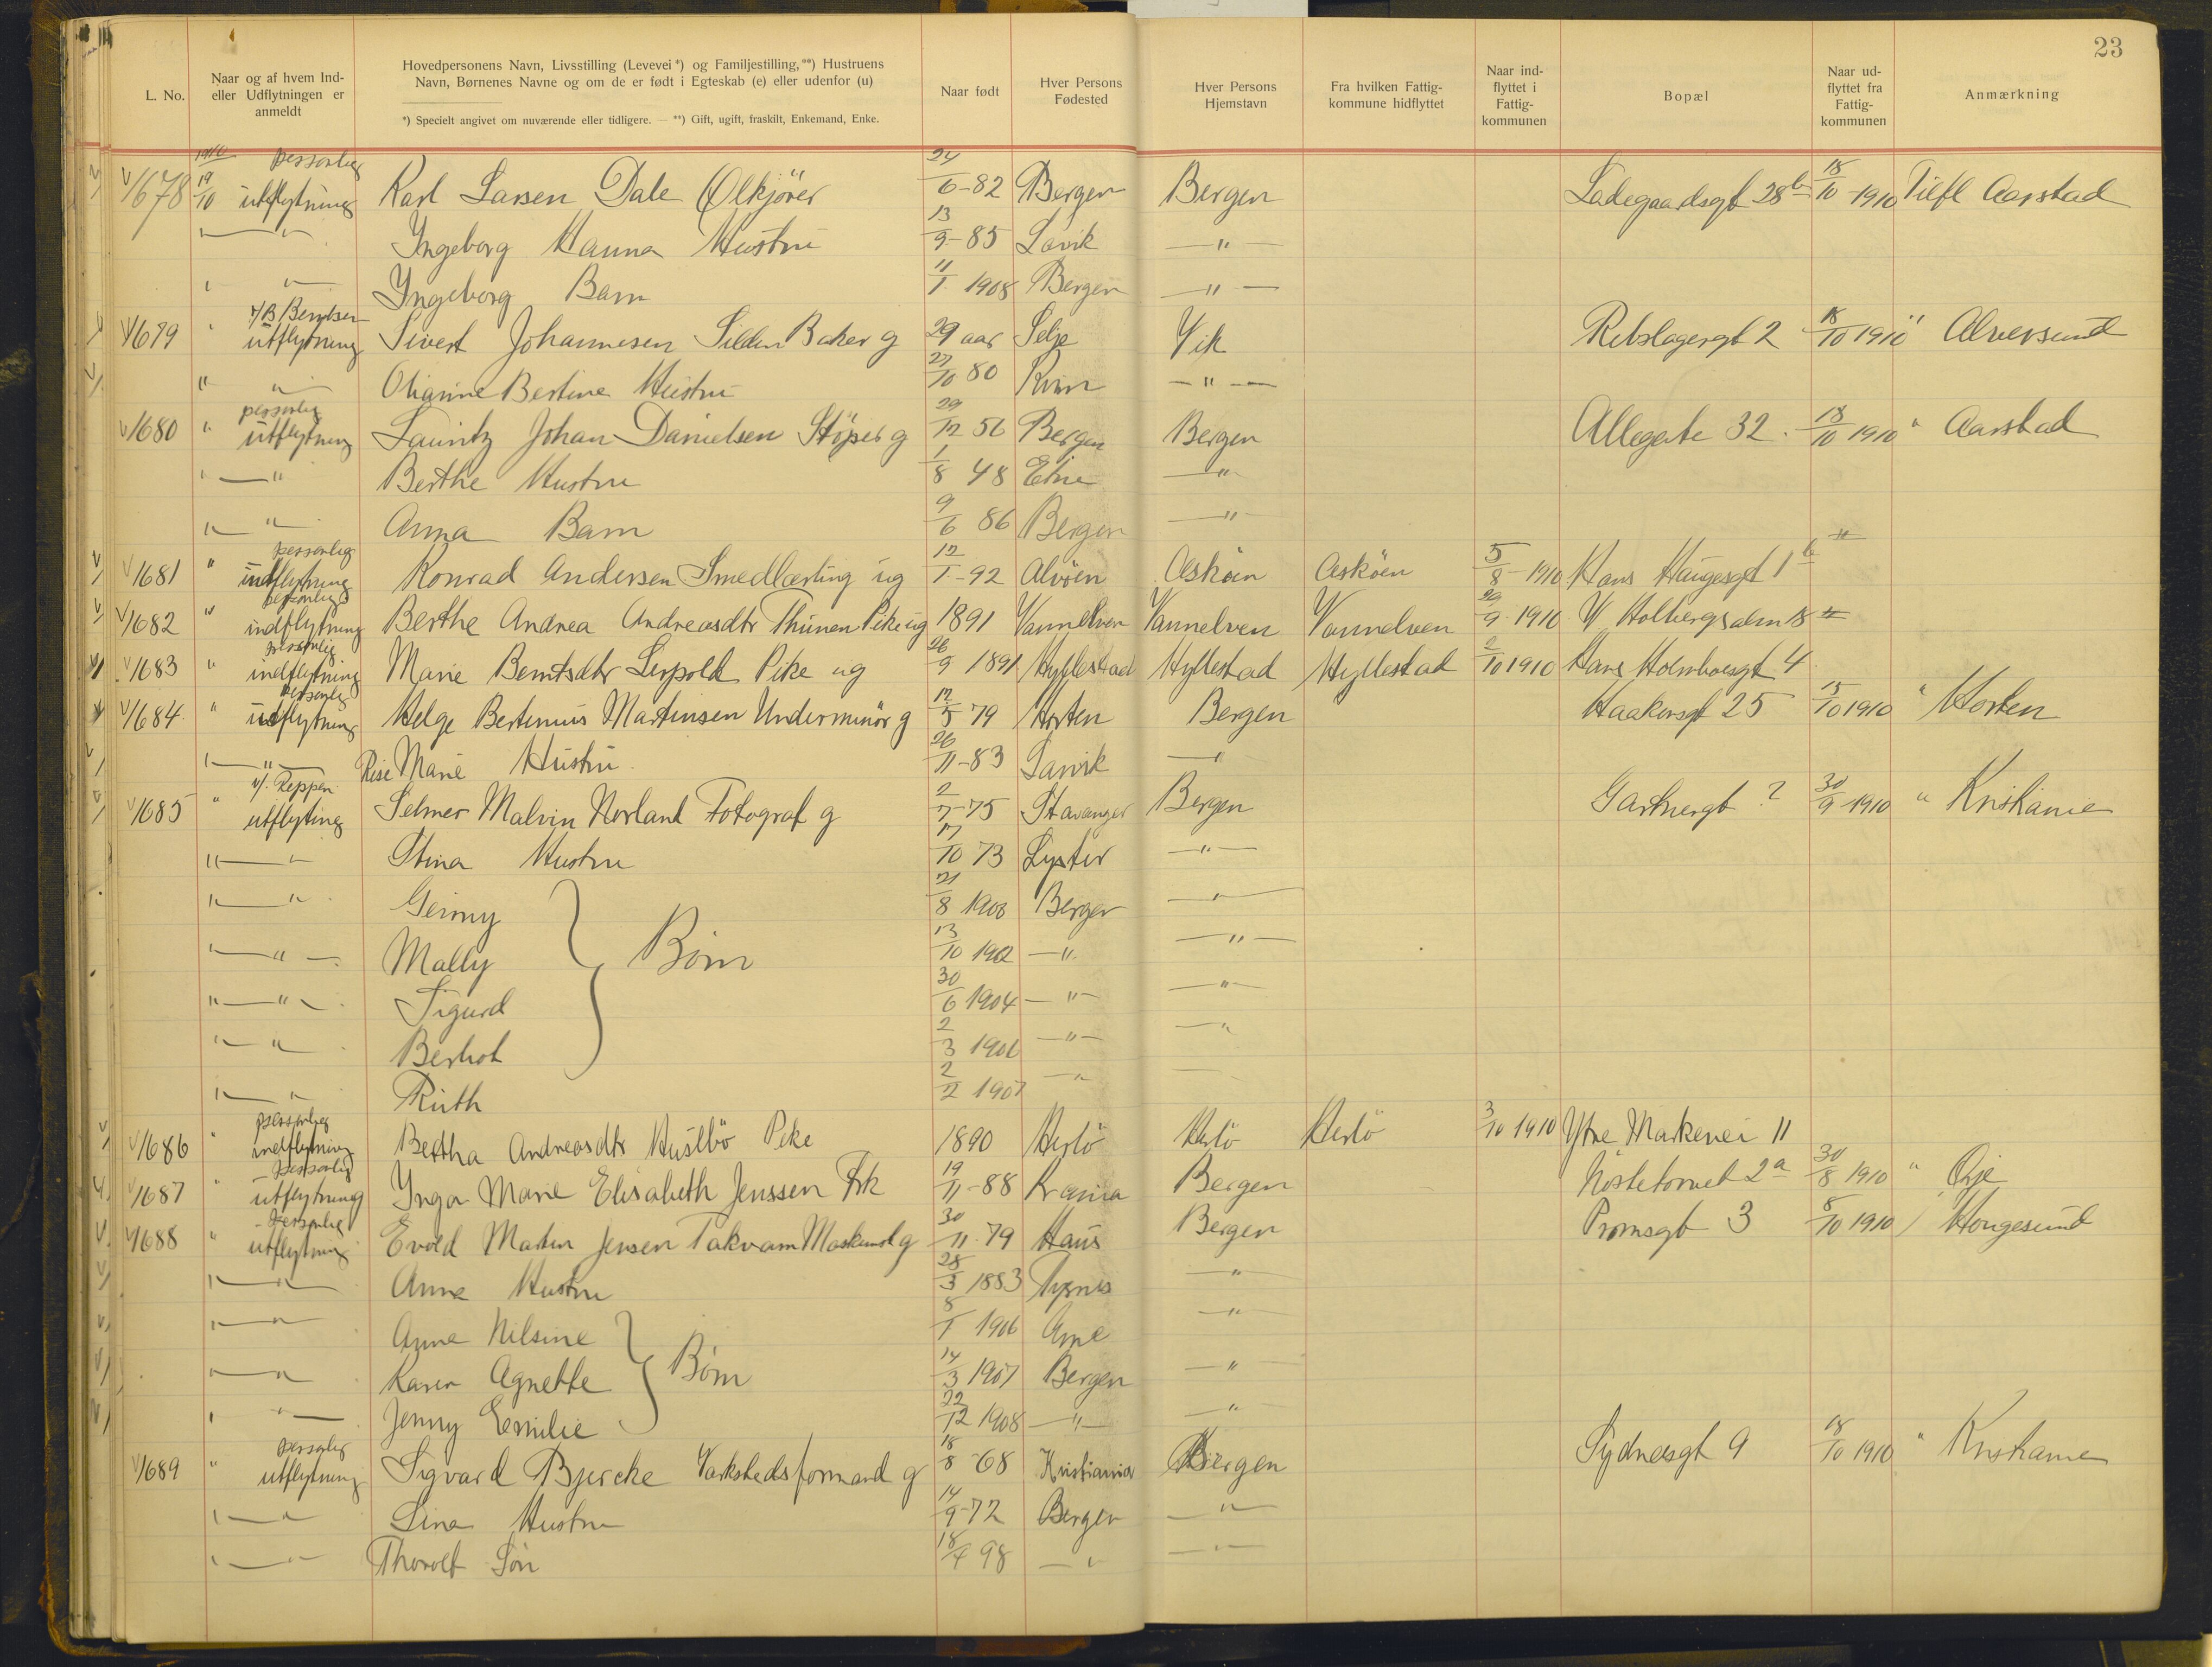 23
L. No. Naar og af hvem Ind- eller Udflytningen er anmeldt Hovedpersonens Navn, Livsstilling (Levevei*) og Familjestilling,**) Hustruens Navn, Børnenes Navne og om de er født i Egteskab (e) eller udenfor (u) Naar født Hver Persons Fødested Hver Persons Hjemstavn Fra hvilken Fattig- kommune hidflyttet Naar ind- flyttet i Fattig- kommunen Bopæl Naar ud- flyttet fra Fattig- kommunen Anmærkning
*) Specielt angivet om nuværende eller tidligere. — **) Gift, ugift, fraskilt, Enkemand, Enke.
1910 personlig
1678 19/10 utflytning Karl Larsen Dale Ølkjörer 24/6-82 Bergen Bergen Ladegaardsgt 28b 18/10-1910 Tilfl Aarstad
— " — Ingeborg Hanna Hustru 13/9-85 Lavik — " —
" " — Ingeborg Barn 11/1 1908 Bergen — " —
v/B Berntsen
1679 " utflytning Sivert Johannesen Silden Baker g 29 aar Selje Vik Rebslagergt 2 18/10 1910 " Alversund
" " — Olianne Bertine Hustru 27/10 80 Kinn — " —
personlig
1680 " utflytning Lauritz Johan Danielsen Støper g 29/12 56 Bergen Bergen Allegate 32. 18/10 1910 " Aarstad
" — " Berthe Hustru 1/8 48 Etne — " —
" — " Anna Barn 9/6 86 Bergen — " —
personlig
1681 " indflytning Konrad Andersen Smedlærling ug 12/1-92 Alvöen Asköen Asköen 5/8-1910 Hans Haugesgt 1b "
personlig
1682 " indflytning Berthe Andrea Andreasdtr Thunen Pike ug 1891 Vannelven Vannelven Vannelven 29/9 1910 V Holbergsalm 18 "
personlig
1683 " indflytning Marie Berntsdtr Leirpold Pike ug 26/9 1891 Hyllestad Hyllestad Hyllestad 2/10 1910 Hans Holmboesgt 4
personlig
1684 " udflytning Helge Bertinius Martinsen Underminör g 12/5 79 Horten Bergen Haakonsgt 25 15/10 1910 " Horten
" — " — Rise Marie Hustru 26/11-83 Larvik — " —
v/. Reppen
1685 " utflyting Selmer Malvin Norland Fotograf g 2/7-75 Stavanger Bergen Gartnergt ? 30/9 1910 " Kristiania
" — " Stina Hustru 17/10 73 Lyster — " —
" — " Genny 21/8 1900 Bergen — " —
" — " — Mally } Børn 13/10 1902 — " — " —
" — " — Sigurd 30/6 1904 — " — — " —
" — " Berhot 2/3 1906 — " — — "
" — " Ruth 2/2 1907 — "
personlig
1686 " indflytning Bertha Andreasdtr Huslbö Pike 1890 Herlö Herlö Herlö 3/10 1910 Ytre Markevei 11
personlig
1687 " utflytning Inga Marie Elisabeth Jenssen Frk 19/11-88 Krania Bergen Nöstetorvet 2a 30/8 1910 " Øije
personlig
1688 " utflytning Evold Martin Jensen Takvam Maskinist g 30/11 79 Haus Bergen Promsgt 3 8/10 1910 Hougesund
" — " — Anna Hustru 28/3 1883 Tysnes — " —
" — " — Anne Nilsine 8/1 1906 Arne — " —
" — " Karen Agnette } Børn 14/3 1907 Bergen — " —
" " — Jenny Emilie 22/12 1908 — " — — " —
personlig
1689 " utflytning Sigvard Bjercke Varkstedsformand g 18/8 68 Kristiania Bergen Sydnesgt 9 18/10 1910 " Kristiania
" — " Lina Hustru 14/9-72 Bergen — " —
" — " Thorolf Sön 18/4 98 — " — " —